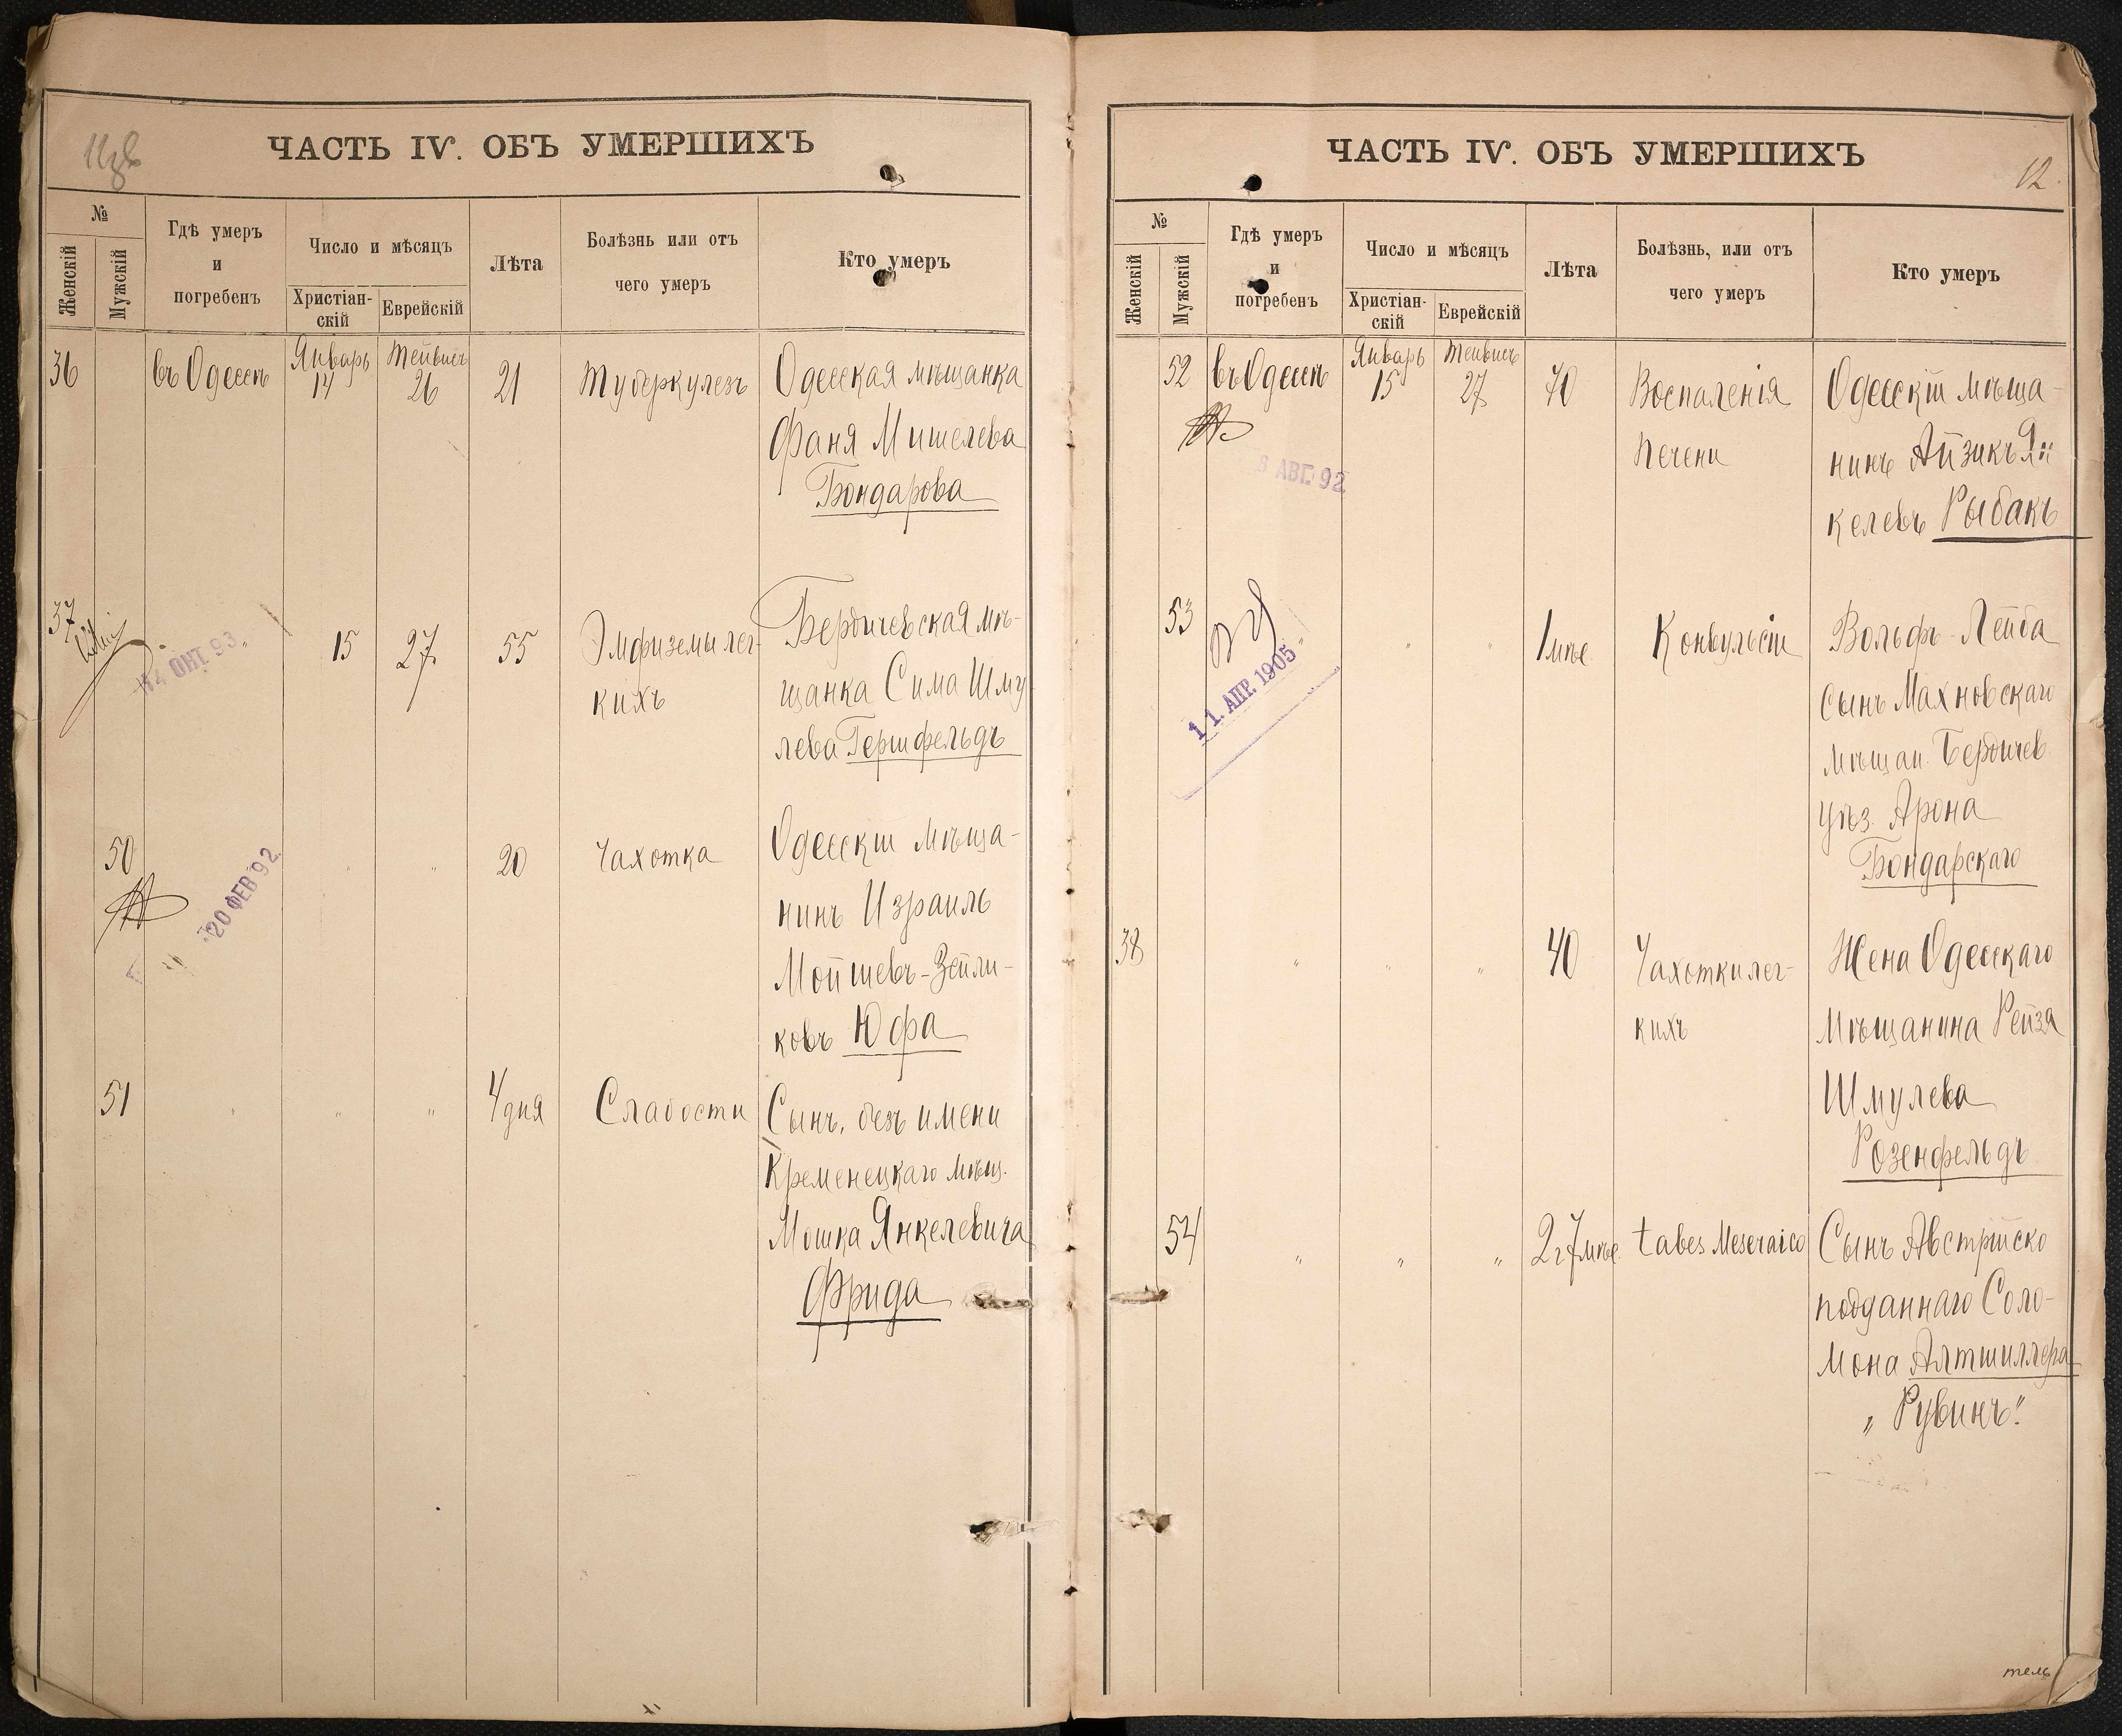 ЧАСТЬ IV. ОБЪ УМЕРШИХЪ
№
Женскій
Мужскій
Гдѣ умеръ
и
погребенъ
Число и мѣсяцъ
Христіан-
скій
Еврейскій
Лѣта
Болѣзнь или отъ
чего умеръ
Кто умеръ
36 въ Одессѣ Январь 14 Тейвисъ 26 21 Туберкулезъ Одесская мѣщанка
Фаня Мишелева
Бондарова
37 15 27 55 Эмфиземы лег- Бердичевская мѣ-
14 ОКТ. 93.
кихъ щанка Сима Шму
лева Гершфельдъ
50 " " 20 Чахотка Одесскій мѣща-
20 ФЕВ 92.
нинъ Израиль
Мойшевъ-Зейли-
ковъ Юфа
51 " " " 4 дня Слабости Сынъ, безъ имени
Кременецкаго мѣщ.
Мошка Янкелевича
Фрида
ЧАСТЬ IV. ОБЪ УМЕРШИХЪ
12.
№
Женскій
Мужскій
Гдѣ умеръ
и
погребенъ
Число и мѣсяцъ
Христіан-
скій
Еврейскій
Лѣта
Болѣзнь, или отъ
чего умеръ
Кто умеръ
52 въ Одессѣ Январь 15 Тейвисъ 27 70 Воспаленія Одесскій мѣща-
печени нинъ Айзикъ Ян
8 АВГ. 92.
келевъ Рыбакъ
53 " " " 1 мѣс. Конвульсій Вольфъ-Лейба
11. АПР. 1905
сынъ Махновскаго
мѣщан. Бердичев
уѣз. Арона
Бондарскаго
38 " " " 40 Чахотки лег- Жена Одесскаго
кихъ мѣщанина Рейзя
Шмулева
Розенфельдъ
54 " " " 2 г 7 мѣс. tabes Meseraico Сынъ Австрійско
подданнаго Соло-
мона Алтшиллера
„Рувинъ."
тель